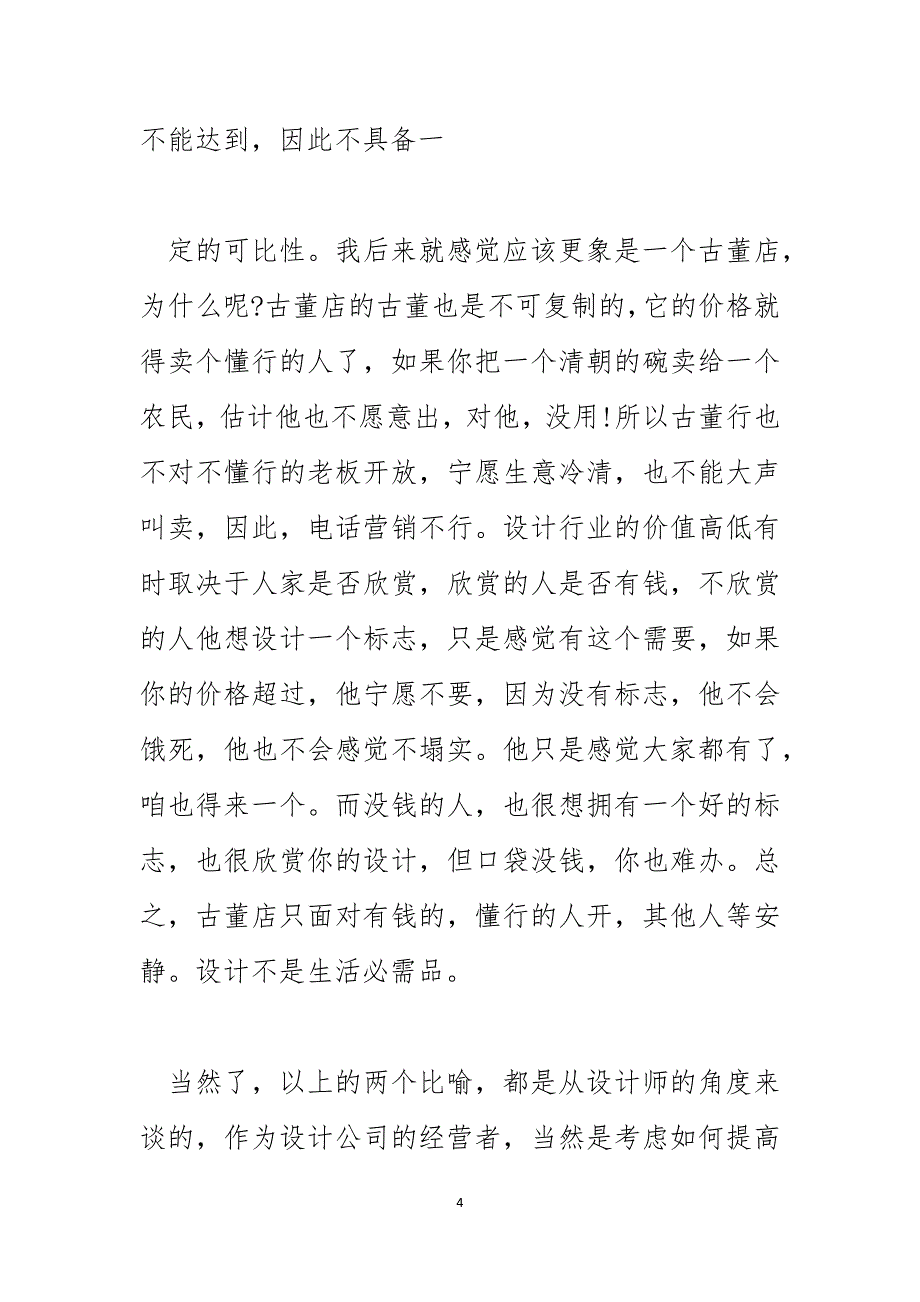 不能达到，因此不具备一
定的可比性。我后来就感觉应该更象是一个古董店，
为什么呢?古董店的古董也是不可复制的，它的价格就
得卖个懂行的人了，如果你把一个清朝的碗卖给一个
农民，估计他也不愿意出，对他，没用!所以古董行也
不对不懂行的老板开放，宁愿生意冷清，也不能大声
叫卖，因此，电话营销不行。设计行业的价值高低有
时取决于人家是否欣赏，欣赏的人是否有钱，不欣赏
的人他想设计一个标志，只是感觉有这个需要，如果
你的价格超过，他宁愿不要，因为没有标志，他不会
饿死，他也不会感觉不塌实。他只是感觉大家都有了，
咱也得来一个。而没钱的人，也很想拥有一个好的标
志，也很欣赏你的设计，但口袋没钱，你也难办。总
之，古董店只面对有钱的，懂行的人开，其他人等安
静。设计不是生活必需品。
当然了，以上的两个比喻，都是从设计师的角度来
谈的，作为设计公司的经营者，当然是考虑如何提高
4